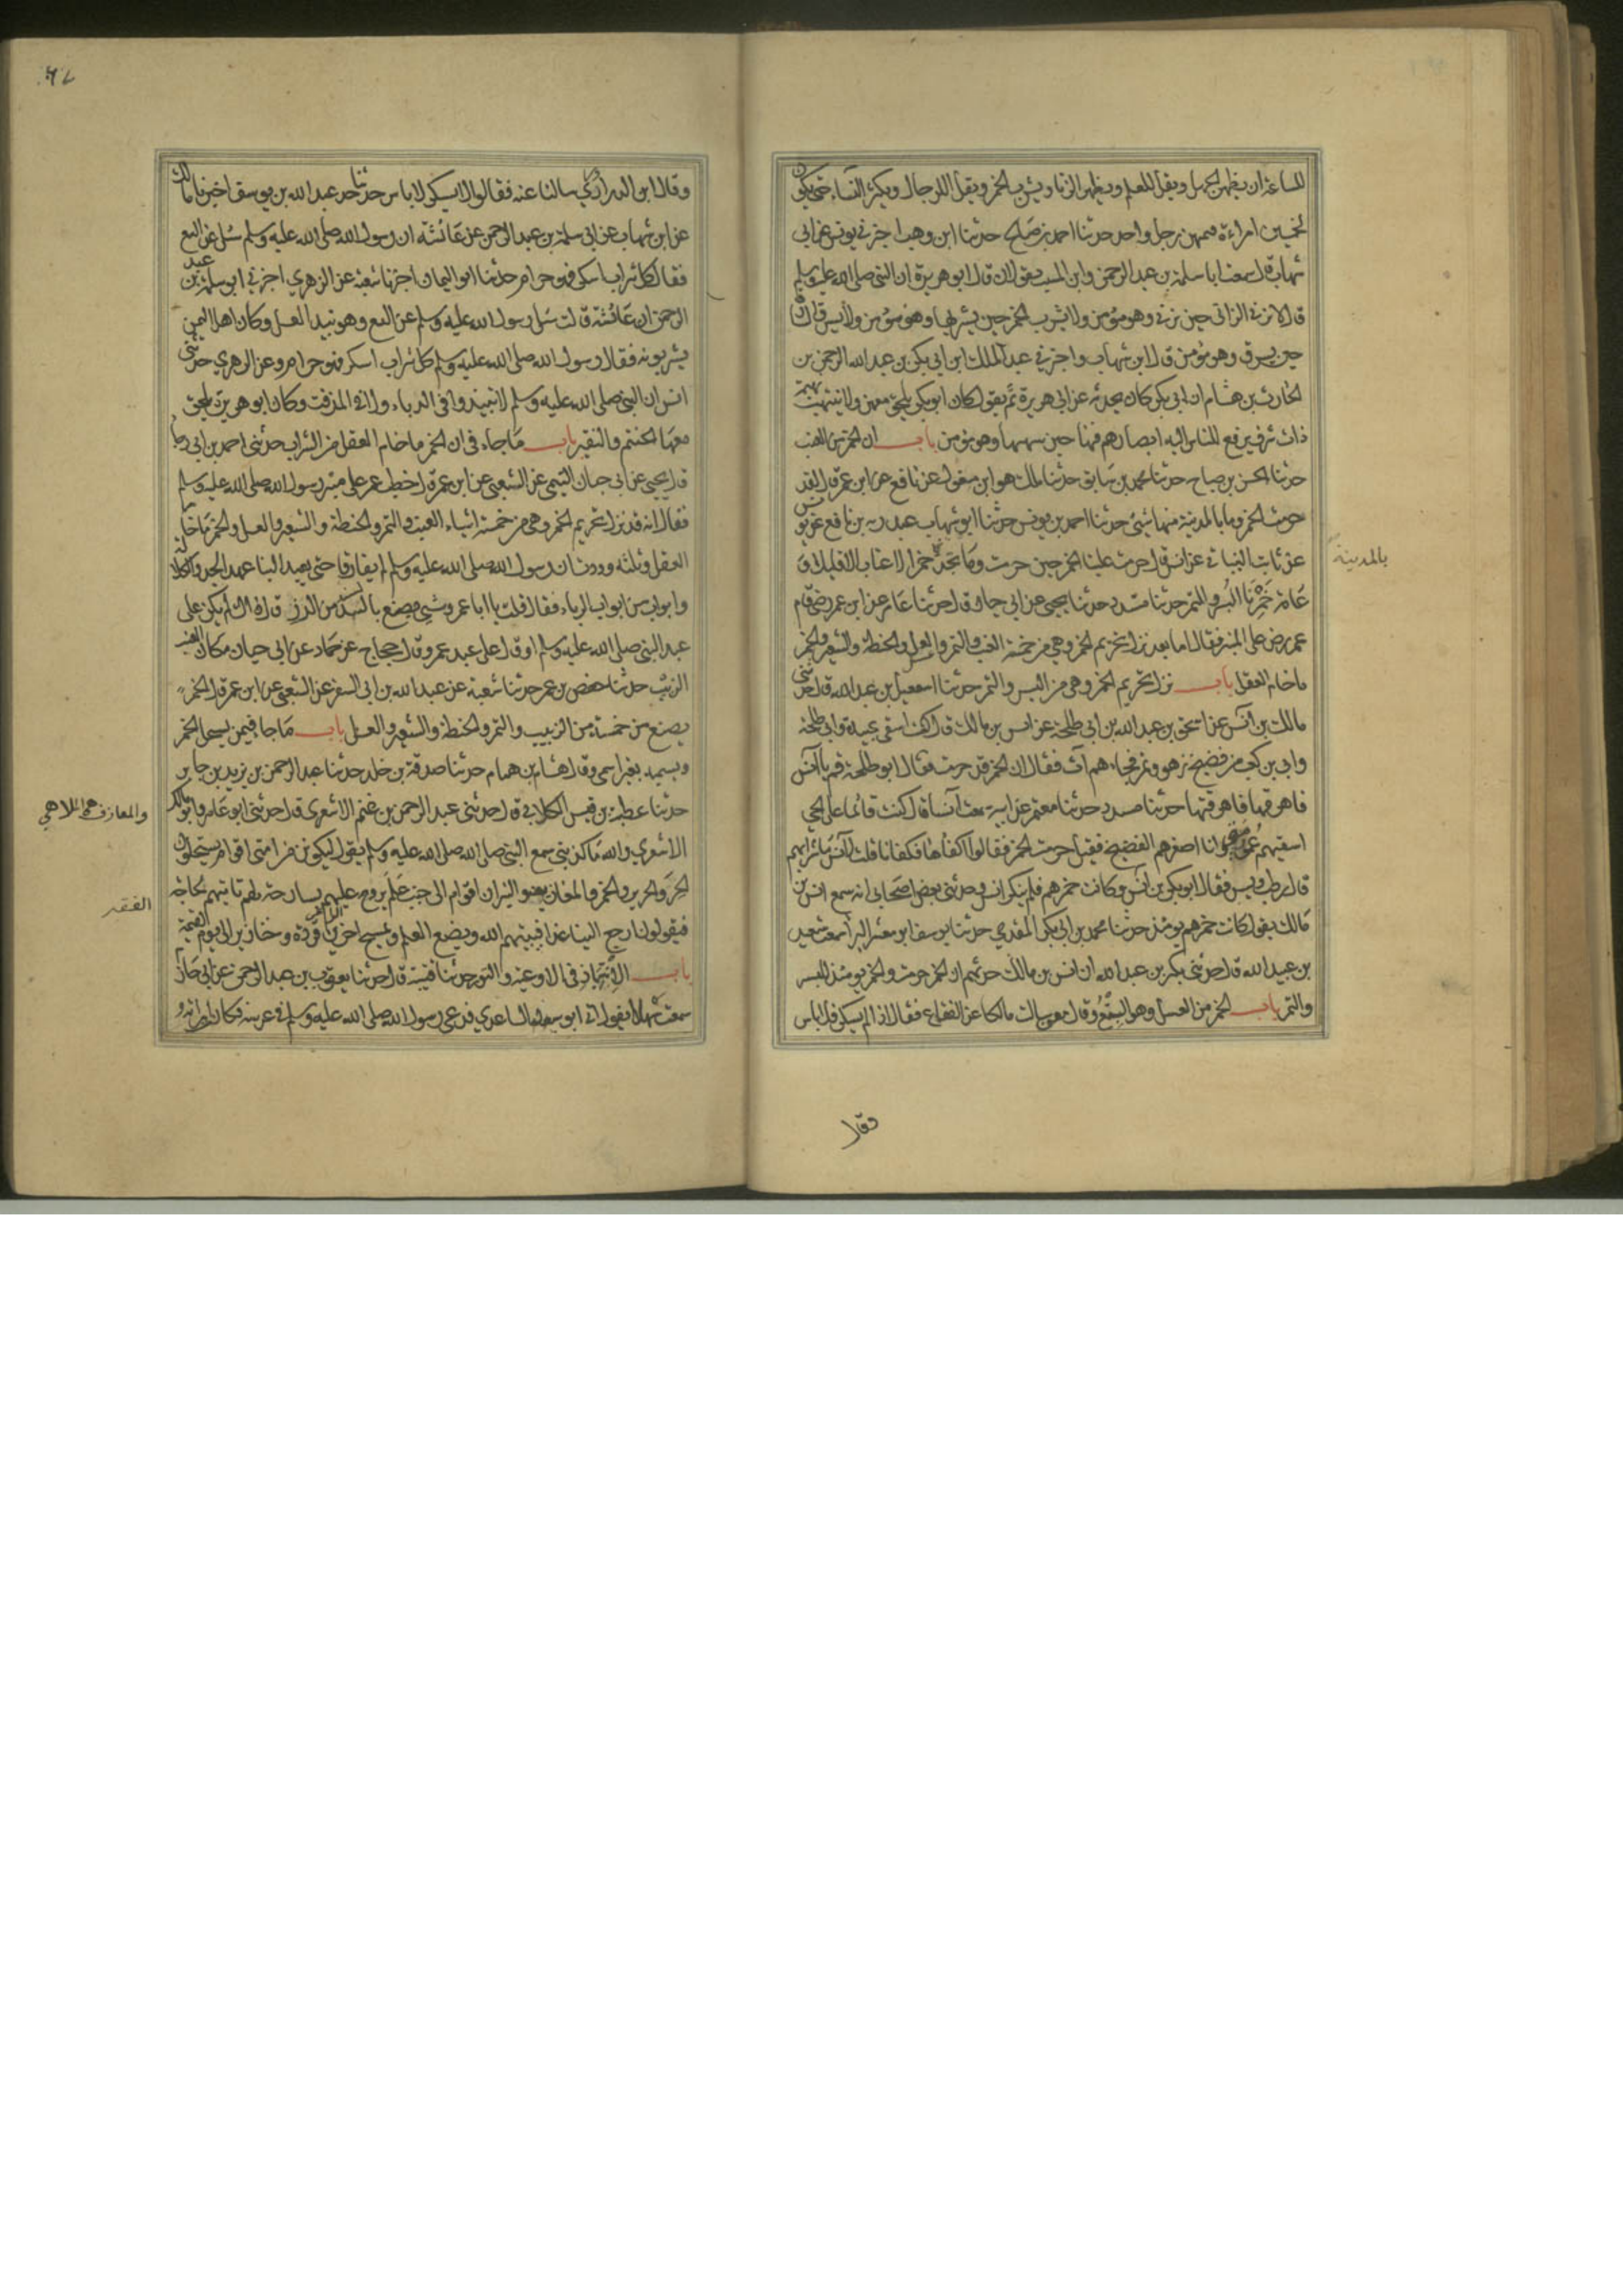 الساعة ان يظهر الجهل ويقل العلم ويظهر الزنا ويشرب الخمر ويقل الرجال ويكثر النساء حتى يكون
لخمسين امراءة قيمهن رجل واحد حدثنا احمد بن صالح حدثنا ابن وهب اخبرني يونس عن ابن
شهاب قال سمعت ابا سلمة بن عبد الرحمن وابن المسيب يقولان قال ابو هريرة ان النبي صلى الله عليه وسلم
قال لا يزني الزاني حين يزني وهو مؤمن ولا يشرب الخمر حين يشربها وهو مؤمن ولا يسرق السارق
حين يسرق وهو مؤمن قال ابن شهاب واخبرني عبد الملك ابن ابي بكر بن عبد الله الرحمن بن
الحارث بن هشام ان ابى بكر كان يحدثه عن ابي هريرة ثم يقول كان ابو بكر يلحق معهن ولا ينتهب نهبة
ذات شرف يرفع الناس اليه ابصارهم فيها حين ينتهبها وهو مؤمن باب ان الخمر من العنب
حدثنا الحسن بن صباح حدثنا محمد بن سابق حدثنا مالك هو ابن مغول عن نافع عن ابن عمر قال لقد
حرمت الخمر وما بالمدينة منها شئ حدثنا احمد بن يونس حدثنا ابو شهاب عبد ربه بن نافع عن يونس
عن ثابت البناني عن انس قال حرمت علينا الخمر حين حرمت وما نجد خمر الاعناب الا قليلا و
بالمدينة
عامة خمرنا البسر والتمر حدثنا مسدد حدثنا يحيى عن ابي حيان قال حدثنا عامر عن ابن عمر رضى قام
عمر رضى على المنبر فقال اما بعد نزل تحريم الخمر وهي من خمسة العنب والتمر والعسل والحنطة والشعير والخمر
ما خامر العقل باب نزل تحريم الخمر وهي من البسر والتمر حدثنا اسمعيل بن عبد الله قال حدثنى
مالك بن انس عن اسحق بن عبد الله بن ابى طلحة عن انس بن مالك قال كنت اسقى عبيدة وابي طلحة
وابي بن كعب من فضيخ زهو وتمر فجاءهم آت فقال ان الخمر قد حرمت فقال ابو طلحة قم يا انس
فاهرقها فاهرقتها حدثنا مسدد حدثنا معتمر عن ابيه سمعت انسا قال كنت قائما على الحي
اسقيهم عمومتي وانا اصغرهم الفضيخ فقيل حرمت الخمر فقالوا اكفأها فكفانا قلت لانس ما شرابهم
قال رطب وبسر فقال ابو بكر بن انس وكانت خمرهم فلم ينكر انس وحدثني بعض اصحابي انه سمع انس بن
مالك يقول كانت خمرهم يومئذ حدثنا محمد بن ابي بكر المقدمي حدثنا يوسف ابو معشر البراء سمعت سعيد
بن عبيد الله قال حدثني بكر بن عبد الله ان انس بن مالك حدثهم ان الخمر حرمت والخمر يومئذ البسر
والتمر باب الخمر من العسل وهو البتع وقال معن سالت مالكا عن الفقاع فقال اذا لم يسكر فلا باس
وقال
٦٧
وقال ابن الدراوردي سالنا عنه فقالوا لا يسكر لا باس حدثنا عبد الله بن يوسف اخبرنا مالك
عن ابن شهاب عن ابى سلمة بن عبد الرحمن عن عائشة ان رسول الله صلى الله عليه وسلم سئل عن البتع
فقال كل شراب اسكر فهو حرام حدثنا ابو اليمان اخبرنا شعيب عن الزهري اخبرني ابو سلمة بن عبد
الرحمن ان عائشة قالت سئل رسول الله صلى الله عليه وسلم عن البتع وهو نبيذ العسل وكان اهل اليمن
يشربونه فقال رسول الله صلى الله عليه وسلم كل شراب اسكر فهو حرام وعن الزهري حدثنى
انس ان النبي صلى الله عليه وسلم لا تنبذوا في الدباء ولا في المزفت وكان ابو هريرة يلحق
معها الحنتم والنقير باب ما جاء في ان الخمر ما خامر العقل من الشراب حدثني احمد بن ابي رجا
قال يحيى عن ابي حيان التيمي عن الشعبي عن ابن عمر قال خطب عمر على منبر رسول الله صلى الله عليه وسلم
فقال انه قد نزل تحريم الخمر وهي من خمسة اشياء العنب والتمر والحنطة والشعير والعسل والخمر ما خامر
العقل وثلثة وددت ان رسول الله صلى الله عليه وسلم لم يفارقنا حتى يعهد الينا عهدا الجد والكلالة
وابواب من ابواب الرباء فقال قلت يا ابا عمرو شئ يصنع بالسند من الرز قال ذاك لم يكن على
عهد النبى صلى الله عليه وسلم او قال على عهد عمر وقال حجاج عن حماد عن ابى حيان مكان العنب
الزبيب حدثنا حفص بن عمر حدثنا شعبة عن عبد الله بن ابي السفر عن الشعبي عن ابن عمر قال الخمر
يصنع من خمسة من الزبيب والتمر والحنطة والشعير والعسل باب ما جا فيمن يستحل الخمر
ويسميه بغير اسمه وقال هشام بن همام حدثنا صدقة بن خلد حدثنا عبد الرحمن بن يزيد بن جابر
حدثنا عطية بن قيس الكلابي قال حدثني عبد الرحمن بن غنم الاشعري قال حدثني ابو عامر وابو مالك
والمعازف هى الملاهي
الاشعري والله ما كذبني سمع النبي صلى الله صلى الله عليه وسلم يقول ليكونن من امتي اقوام يستحلون
الحر والحرير والخمر والمعازف ولينزلن اقوام الى جنب علم يروح عليهم بسارحة لهم تاتيهم لحاجة
الفقير
فيقولون ارجع الينا غدا فيبيتهم الله ويضع العلم ويمسخ اخرين قردة وخنازير الى يوم القيمة
باب الانتباذ في الاوعية والتور حدثنا قتيبة قال حدثنا يعقوب بن عبد الرحمن عن ابي حازم
سمعت سهلا يقول اتى ابو اسيد الساعدي فدعى رسول الله صلى الله عليه وسلم في عرسه فكان امراته